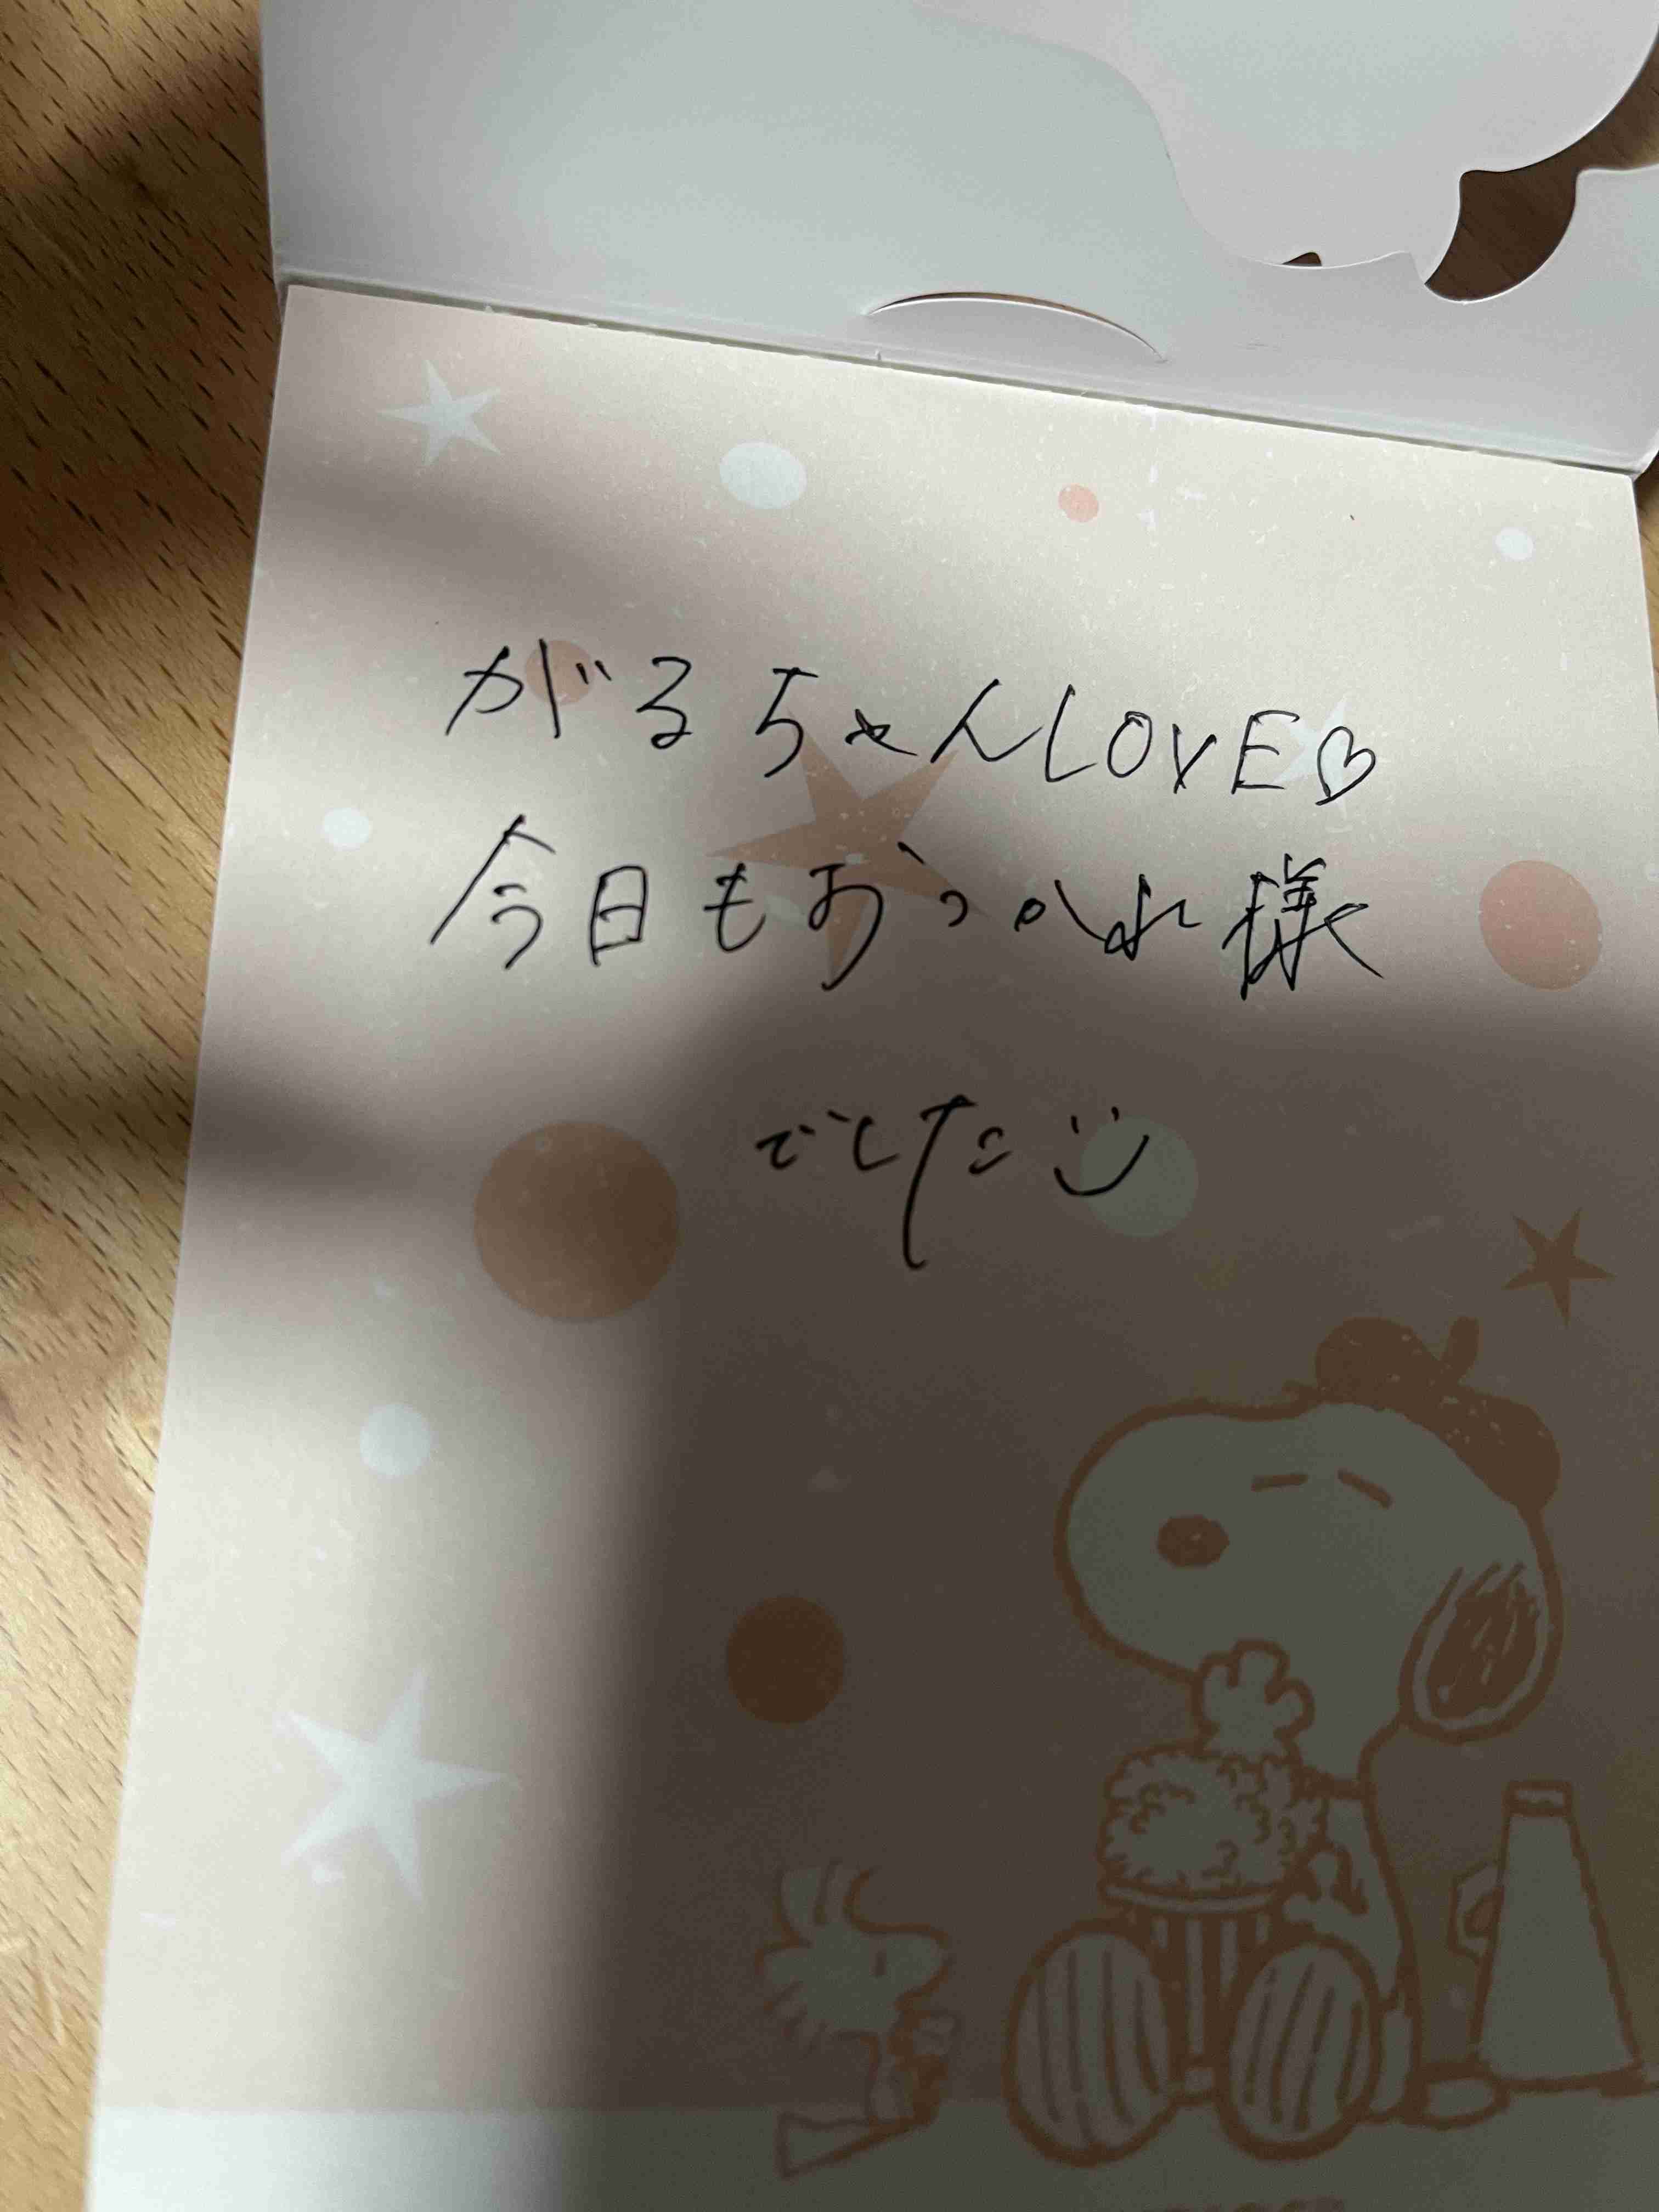 がるちゃんLOVE♡
今日もおつかれ様
でした:)